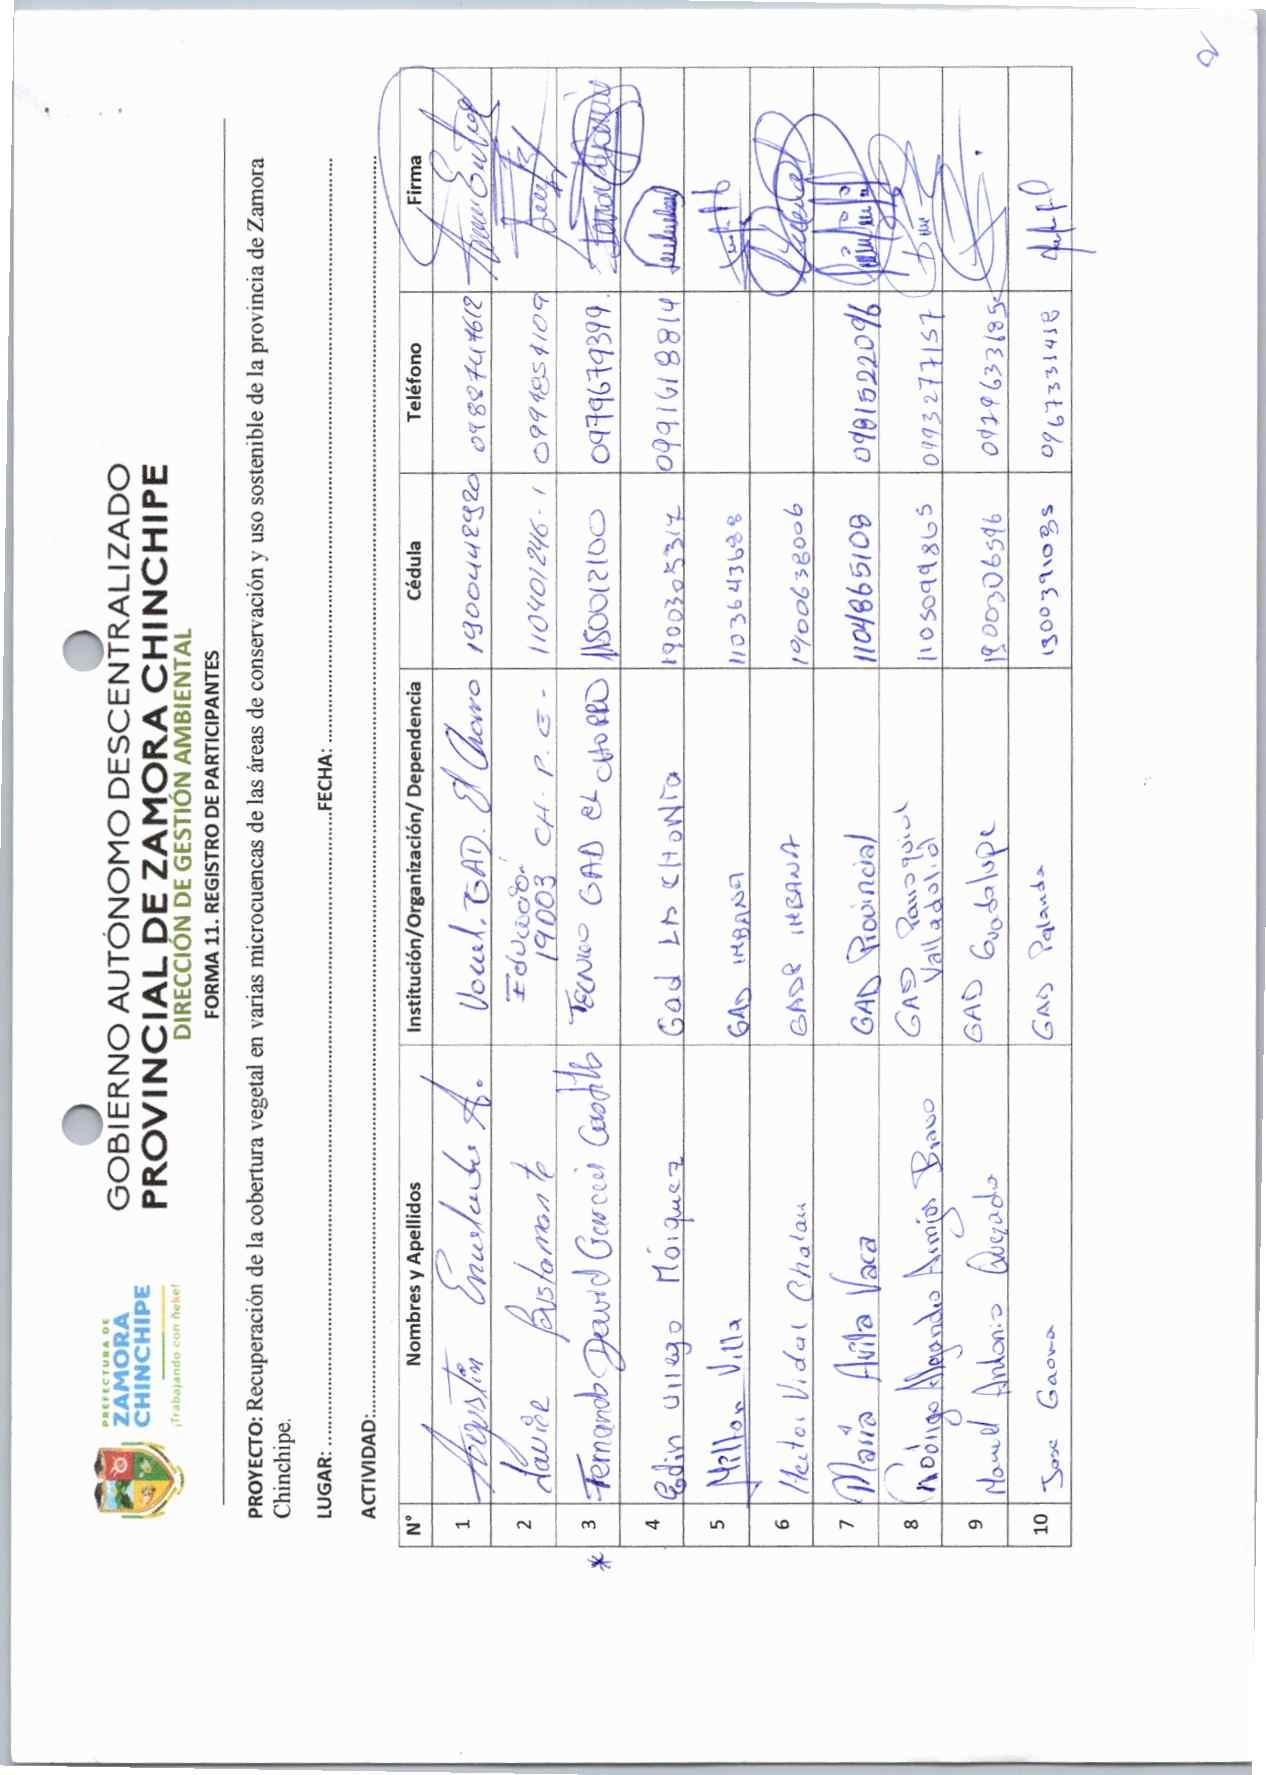 PREFECTURA DE
ZAMORA
CHINCHIPE
¡Trabajando con ñeke!
GOBIERNO AUTÓNOMO DESCENTRALIZADO
PROVINCIAL DE ZAMORA CHINCHIPE
DIRECCIÓN DE GESTIÓN AMBIENTAL
FORMA 11. REGISTRO DE PARTICIPANTES
PROYECTO: Recuperación de la cobertura vegetal en varias microcuencas de las áreas de conservación y uso sostenible de la provincia de Zamora
Chinchipe.
LUGAR: FECHA:
ACTIVIDAD:
N° Nombres y Apellidos Institución/Organización/ Dependencia Cédula Teléfono Firma
1 Agustín A. Vocal. GAD. El Chorro
2 Bustamante Educación 110401246-1
19D03 CH-P.C-
* 3 Fernando David Garcia Castillo TECNICO GAD EL CHORRO 1150012100 0979679399
4 Edin Mórquez Gad LA CHONTA 1900305317 0991618814
5 Milton Villa GAD IMBANA 1103643688
6 Hector Vidal Chalan GADR IMBANA 1900638006
7 María Avila Vaca GAD Provincial 1104865109 0981522096
8 Rodrigo Alejandro Armijos Bravo GAD Parroquial 1105099865 0993277157
Valladolid
9 Manuel Antonio Quezada GAD Guadalupe 1900306596
10 Jose Gaona GAD Palanda 1900391035 0967331418
2